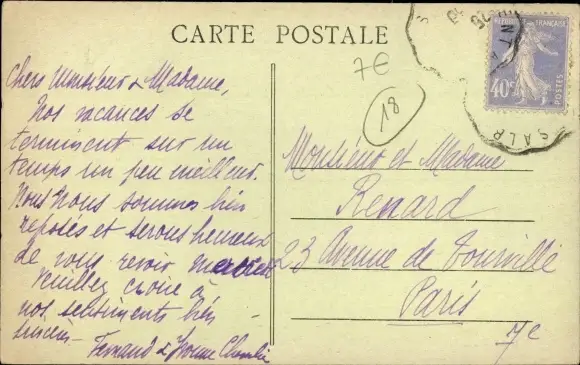 CARTE POSTALE
7€
18
RÉPUBLIQUE FRANÇAISE
40c
POSTES
SALP
Chers Monsieur & Madame,
Nos vacances se
terminent sur un
temps un peu meilleur.
Nous nous sommes bien
reposés et serons heureux
de vous revoir
Veuillez croire à
nos sentiments bien
sincères
Fernand & Yvonne
Monsieur et Madame
Renard
23 Avenue de Tourville
Paris
7e